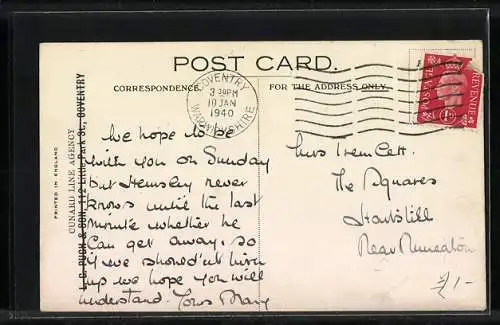 POST CARD.
CORRESPONDENCE.
FOR THE ADDRESS ONLY.
COVENTRY
3 30PM
10 JAN
1940
WARWICKSHIRE
POSTAGE
REVENUE
1D
PRINTED IN ENGLAND
CUNARD LINE AGENCY
PUGH & SON, 112 Little Park St., COVENTRY
We hope to be
with you on Sunday
but Hemsley never
knows until the last
minute whether he
Can get away, so
if we should'nt turn
up we hope you will
understand. Yours Mary
The Squares
Hartshill
Near Nuneaton
£1-